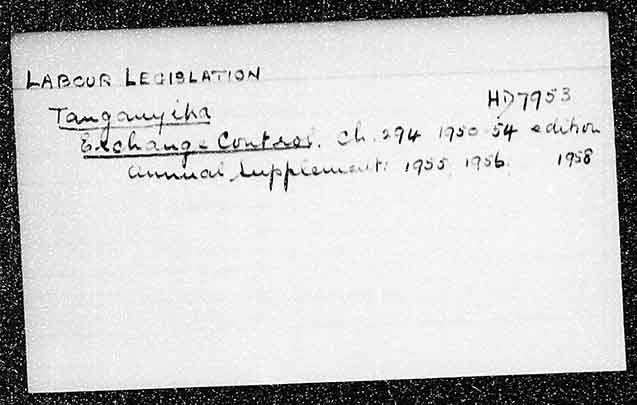 LABOUR LEGISLATION
Tanganyika HD7953
Exchange Control. Ch. 294 1950-54 edition
Annual Supplement: 1955, 1956, 1958